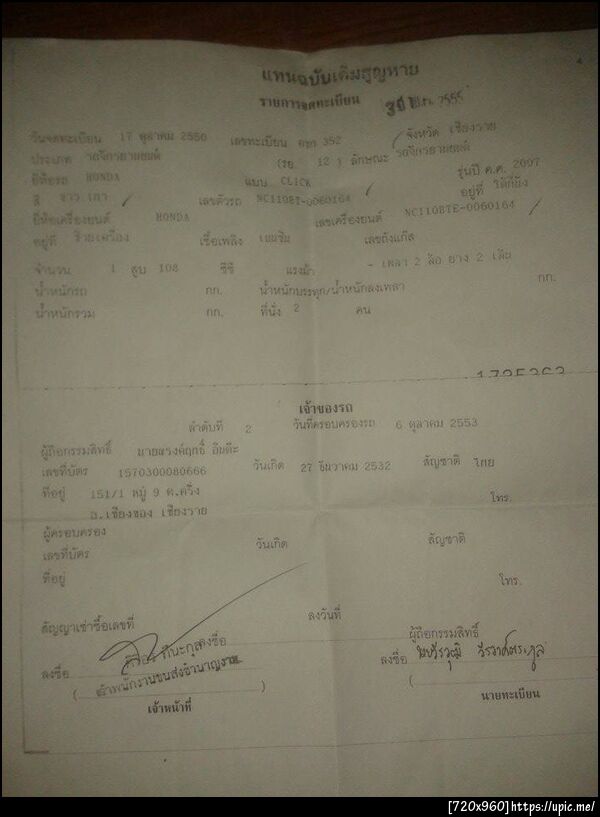 แทนฉบับเดิมสูญหาย
รายการจดทะเบียน 2555
วันจดทะเบียน 17 ตุลาคม 2550 เลขทะเบียน 352 จังหวัด เชียงราย
ประเภท รถจักรยานยนต์ (รย. 12 ) ลักษณะ รถจักรยานยนต์
ยี่ห้อรถ HONDA แบบ CLICK รุ่นปี ค.ศ. 2007
สี ขาว เทา เลขตัวรถ NC110BT-0060164 อยู่ที่ ใต้ที่นั่ง
ยี่ห้อเครื่องยนต์ HONDA เลขเครื่องยนต์ NC110BTE-0060164
อยู่ที่ ซ้ายเครื่อง เชื้อเพลิง เบนซิน เลขถังแก๊ส
จำนวน 1 สูบ 108 ซีซี แรงม้า - เพลา 2 ล้อ ยาง 2 เส้น
น้ำหนักรถ กก. น้ำหนักบรรทุก/น้ำหนักลงเพลา กก.
น้ำหนักรวม กก. ที่นั่ง 2 คน
เจ้าของรถ
ลำดับที่ 2 วันที่ครอบครองรถ 6 ตุลาคม 2553
ผู้ถือกรรมสิทธิ์ อินต๊ะ
เลขที่บัตร 1570300080666 วันเกิด 27 ธันวาคม 2532 สัญชาติ ไทย
ที่อยู่ 151/1 หมู่ 9 ต.ครึ่ง โทร.
อ.เชียงของ เชียงราย
ผู้ครอบครอง
เลขที่บัตร วันเกิด สัญชาติ
ที่อยู่ โทร.
สัญญาเช่าซื้อเลขที่ ลงวันที่
ลงชื่อ ผู้ถือกรรมสิทธิ์
ลงชื่อ ลงชื่อ
เจ้าพนักงานขนส่งชำนาญงาน
( ) (
เจ้าหน้าที่ นายทะเบียน
[720x960]https://upic.me/